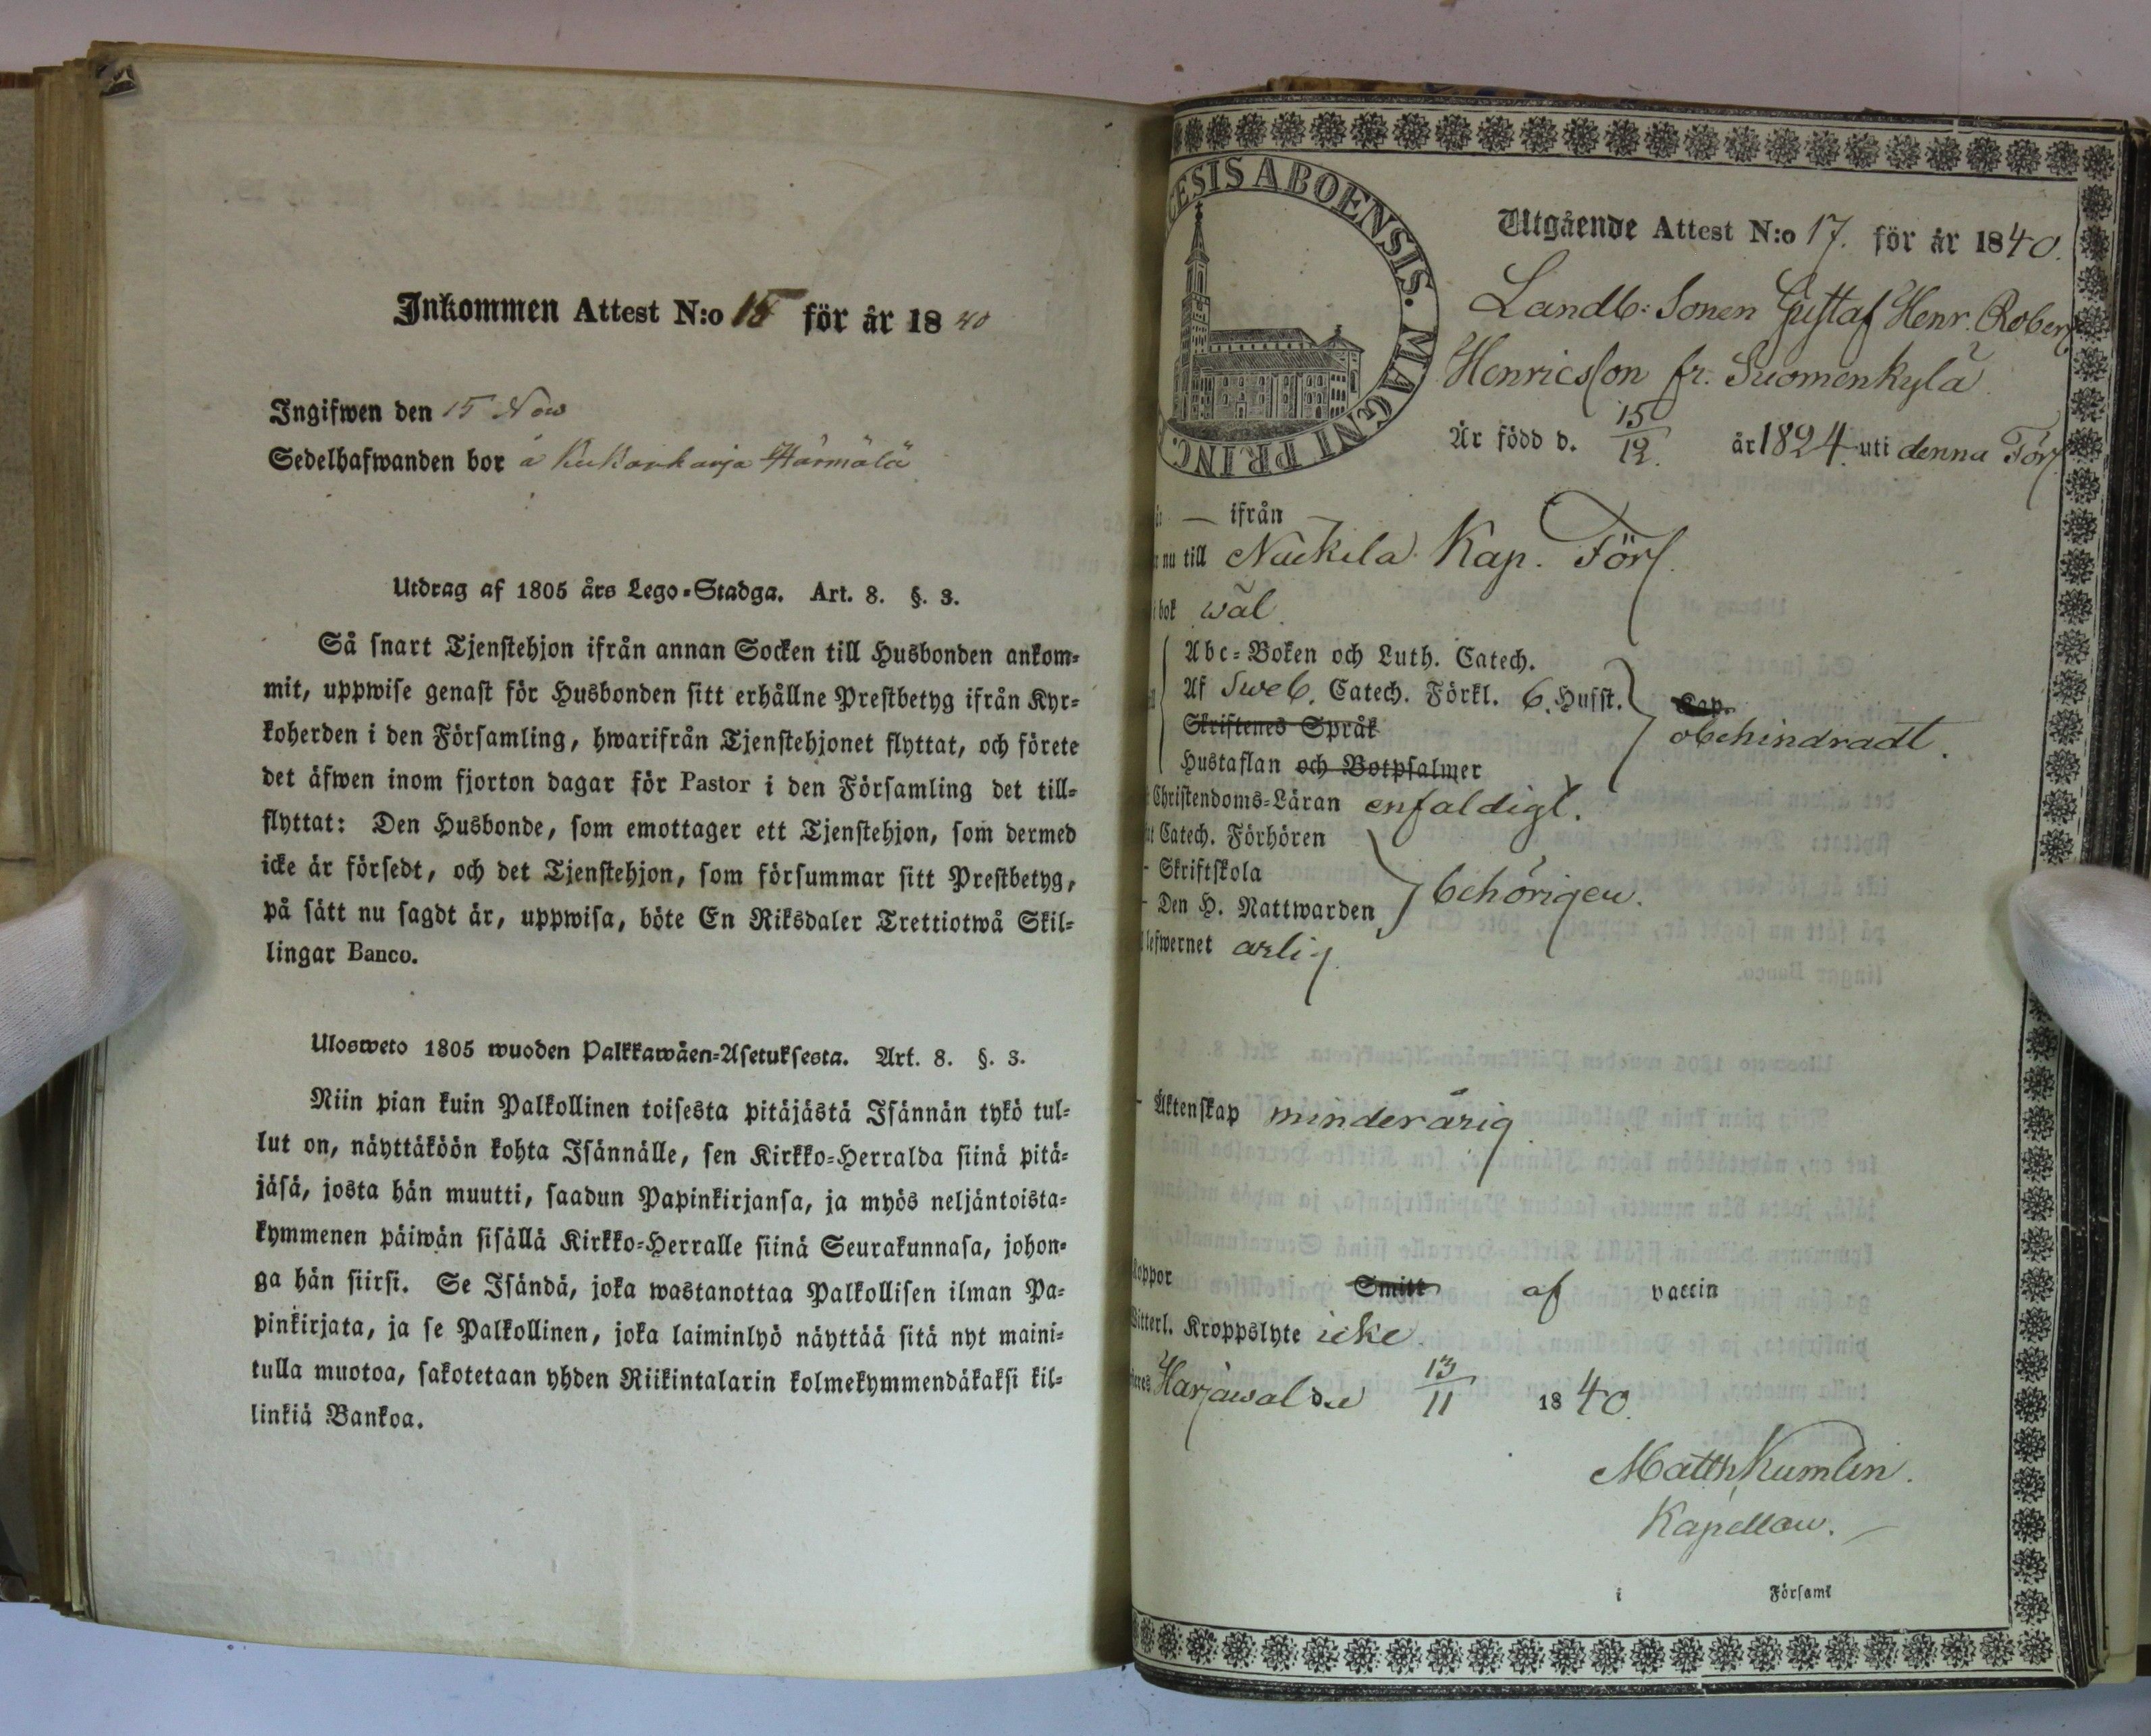 Inkommen Attest N:o 15 för år 1840
Ingifwen den 15 Nov
Sedelhafwanden bor å Kukarkarja Härmälä
Utdrag af 1805 års Lego-Stadga. Art. 8. §. 3.
Så snart Tjenstehjon ifrån annan Socken till Husbonden ankom-
mit, uppwise genast för Husbonden sitt erhållne Prestbetyg ifrån Kyr-
koherden i den Församling, hwarifrån Tjenstehjonet flyttat, och förete
det äfwen inom fjorton dagar för Pastor i den Församling det till-
flyttat: Den Husbonde, som emottager ett Tjenstehjon, som dermed
icke är försedt, och det Tjenstehjon, som försummar sitt Prestbetyg,
på sätt nu sagdt är, uppwisa, böte En Riksdaler Trettiotwå Skil-
lingar Banco.
Ulosweto 1805 wuoden Palkkawäen-Asetuksesta. Art. 8. §. 3.
Niin pian kuin Palkollinen toisesta pitäjästä Isännän tykö tul-
lut on, näyttäköön kohta Isännälle, sen Kirkko-Herralda siinä pitä-
jäsä, josta hän muutti, saadun Papinkirjansa, ja myös neljäntoista-
kymmenen päiwän sisällä Kirkko-Herralle siinä Seurakunnasa, johon-
ga hän siirsi. Se Isändä, joka wastanottaa Palkollisen ilman Pa-
pinkirjata, ja se Palkollinen, joka laiminlyö näyttää sitä nyt maini-
tulla muotoa, sakotetaan yhden Riikintalarin kolmekymmendäkaksi kil-
linkiä Bankoa.
ESIS ABOENSIS. MAGNI PRINC.
Utgående Attest N:o 17. för år 1840.
Landb: Sonen Gustaf Henr. Robert
Henricsson fr. Suomenkylä
Är född d. 15/12. år 1824 uti denna Förs.
— ifrån
nu till Nückila Kap. Förs.
bok wäl.
Abc-Boken och Luth. Catech.
Af Sweb. Catech. Förkl. 6. Husst.
Skriftenes Språk
obehindradt.
Hustaflan och Botpsalmer
Christendoms-Läran enfaldigt.
Catech. Förhören
- Skriftskola
- Den H. Nattwarden behörigen.
lefwernet ärlig
- Äktenskap minderårig
koppor Smitt af vaccin
Witterl. Kroppslyte icke
Harjawalda 13/11 1840.
Matth. Kumlin.
Kapellan.
i Församl